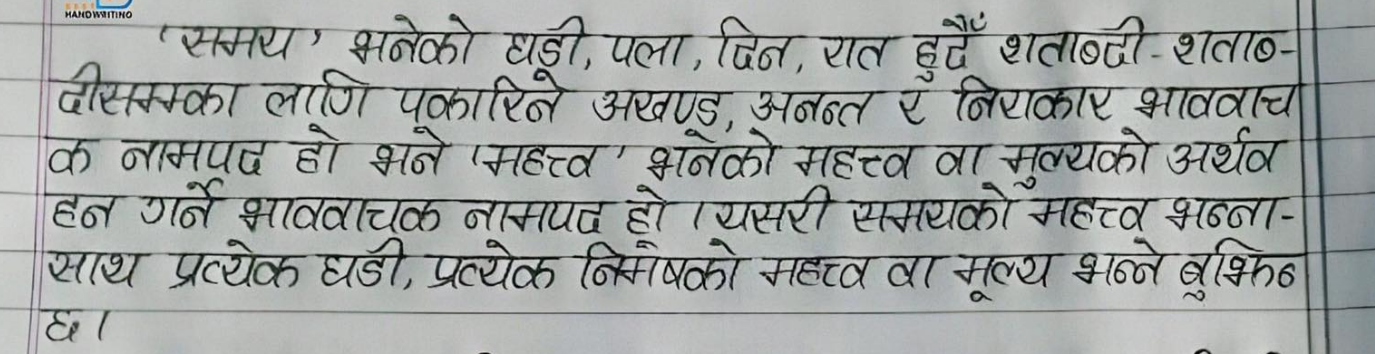 BEST
HANDWRITING
'समय' भनेको घडी, पला, दिन, रात हुदैँ शताब्दी-शताब-
दीसम्मका लागि पुकारिने अखण्ड, अनन्त र निराकार भाववाच
क नामपद हो भने 'महत्त्व' भनेको महत्त्व वा मुल्यको अर्थव
हन गर्ने भाववाचक नामपद हो । यसरी समयको महत्त्व भन्ना-
साथ प्रत्येक घडी, प्रत्येक निमेषको महत्त्व वा मूल्य भन्ने बुझिन
छ ।